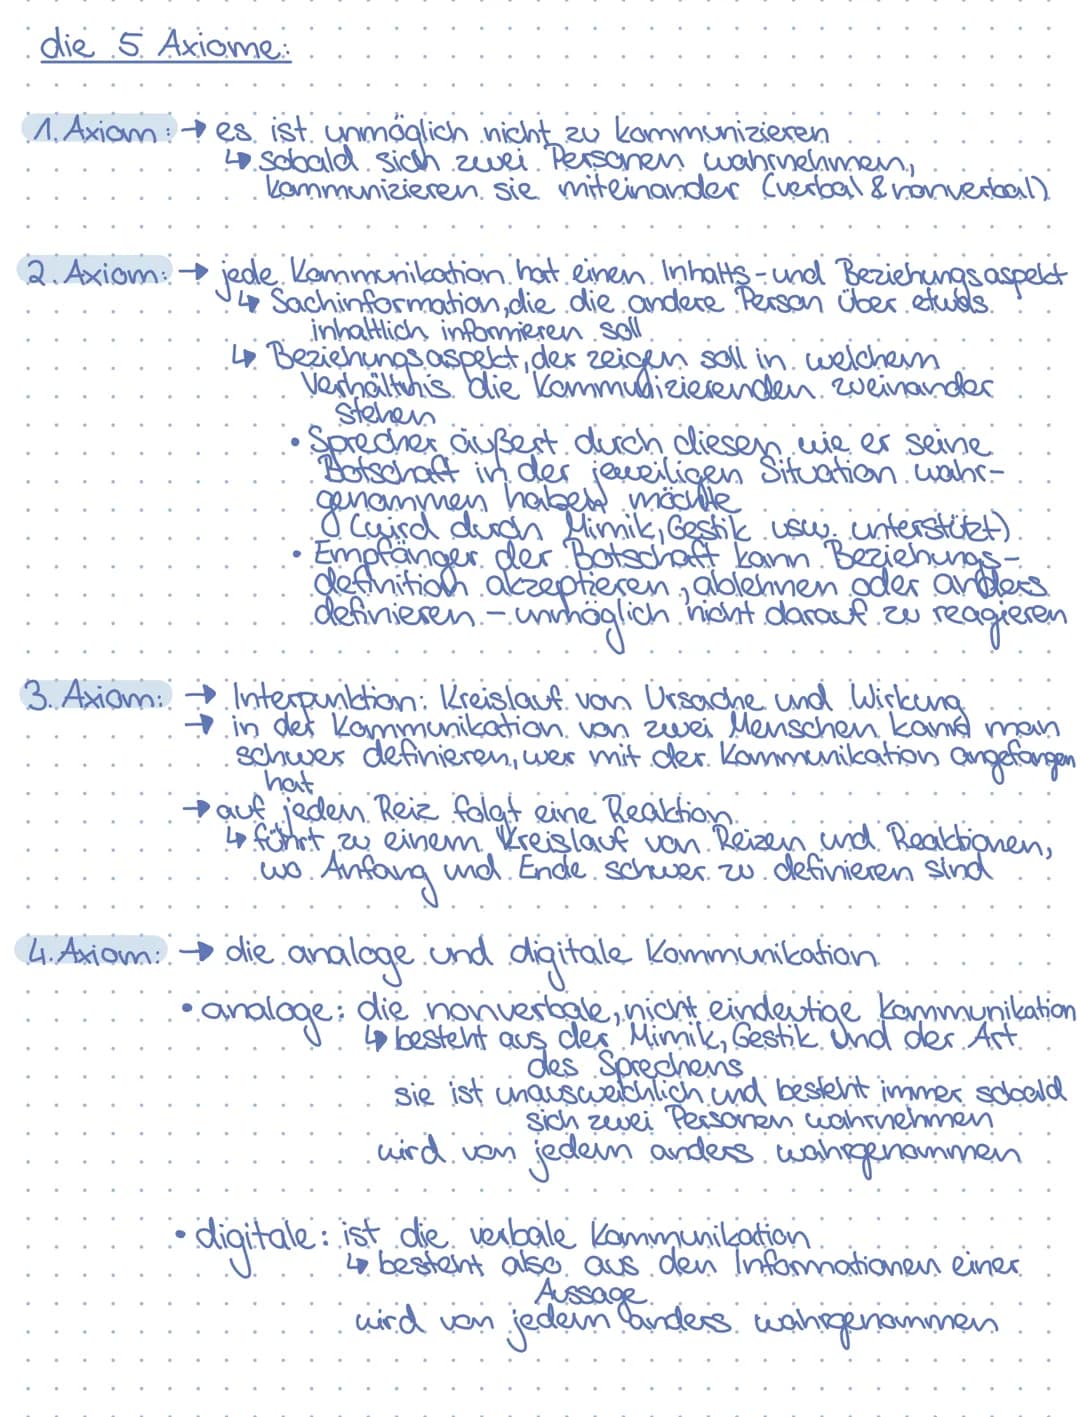 die 5 Axiome:
1. Axiom: → es ist unmöglich nicht zu kommunizieren
↳ sobald sich zwei Personen wahrnehmen,
kommunizieren sie miteinander (verbal & nonverbal)
2. Axiom: → jede Kommunikation hat einen Inhalts- und Beziehungsaspekt
↳ Sachinformation, die die andere Person über etwas
inhaltlich informieren soll
↳ Beziehungsaspekt, der zeigen soll in welchem
Verhältnis die Kommunizierenden zueinander
stehen
• Sprecher äußert durch diesen, wie er seine
Botschaft in der jeweiligen Situation wahr-
genommen haben möchte
(wird durch Mimik, Gestik usw. unterstützt)
• Empfänger der Botschaft kann Beziehungs-
definition akzeptieren, ablehnen oder anders
definieren - unmöglich nicht darauf zu reagieren
3. Axiom: → Interpunktion: Kreislauf von Ursache und Wirkung
→ in der Kommunikation von zwei Menschen kann man
schwer definieren, wer mit der Kommunikation angefangen
hat
→ auf jeden Reiz folgt eine Reaktion
↳ führt zu einem Kreislauf von Reizen und Reaktionen,
wo Anfang und Ende schwer zu definieren sind
4. Axiom: → die analoge und digitale Kommunikation
• analoge: die nonverbale, nicht eindeutige Kommunikation
↳ besteht aus der Mimik, Gestik und der Art
des Sprechens
sie ist unausweichlich und besteht immer sobald
sich zwei Personen wahrnehmen
wird von jedem anders wahrgenommen
• digitale: ist die verbale Kommunikation
↳ besteht also aus den Informationen einer
Aussage
wird von jedem anders wahrgenommen